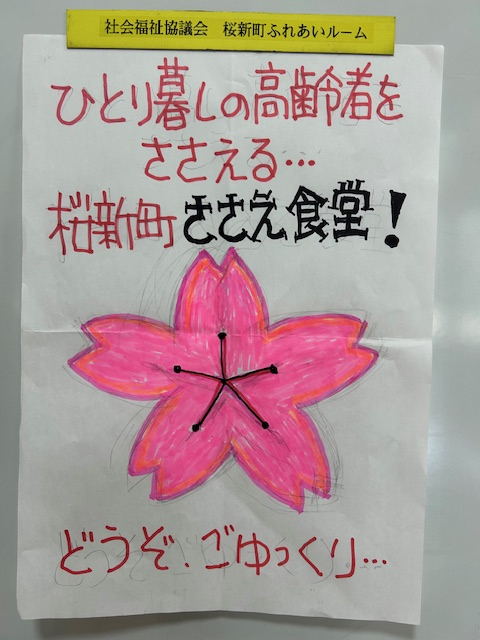 社会福祉協議会　桜新町ふれあいルーム
ひとり暮しの高齢者を
ささえる…
桜新町 ささえ食堂!
どうぞ、ごゆっくり…